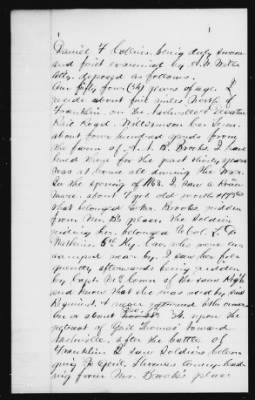 Daniel F Collins being duly sworn
and first examined by A. W. Wills
Atty, deposed as follows.
Am fifty four (54) years of age. I
reside about five miles North of
Franklin on the Nashville & Decatur
Rail Road. Williamson Co. Tenn.
about four hundred yards from
the farm of A. L. B. Brooks. I have
lived here for the past thirty years
was at home all during the War.
In the spring of 1863, I saw a Roan
mare, about 7 yrs old worth $175.00
that belonged to Mr. Brooks ridden
from Mr. B's place. the Soldier
riding her belonged to Col. L. D.
Watkins 6th Ky. Cav who were en-
camped near by. I saw her fre-
quently afterwards being ridden
by Capt. McCown of the same Regt
and know that she was used by said
Regiment. & never returned to the owner
On or about 1864, upon the
retreat of Genl Thomas' toward
Nashville, after the battle of
Franklin I saw Soldiers belon-
ging to Genl. Thomas' army, haul-
ing from Mr. Brooks's place